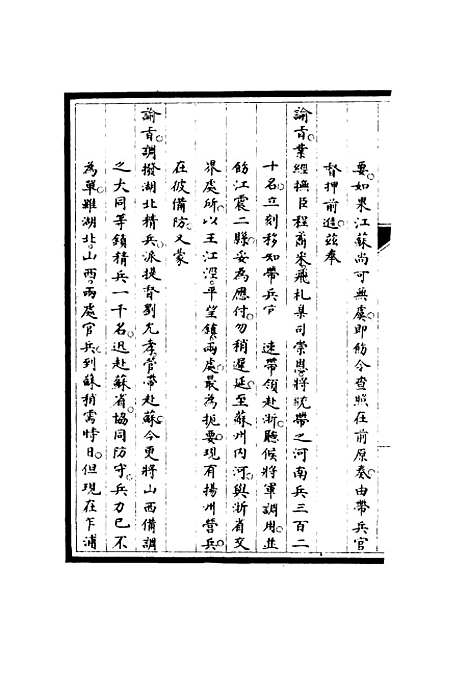 要如果江蘇尚可無虞即飭令查照在前原奏由帶兵官
督押前進茲奉
諭旨業經撫臣程矞采飛札臬司崇恩將統帶之河南兵三百二
十名立刻移知帶兵官 速帶領赴浙聽候將軍調用並
飭江震二縣妥為應付勿稍遲延至蘇州內河與浙省交
界處所以王江涇平望鎮兩處最為扼要現有揚州營兵
在彼備防又蒙
諭旨調撥湖北精兵派提督劉允孝管帶赴蘇今更將山西備調
之大同等鎮精兵一千名迅赴蘇省協同防守兵力已不
為單雖湖北山西兩處官兵到蘇稍需時日但現在乍浦